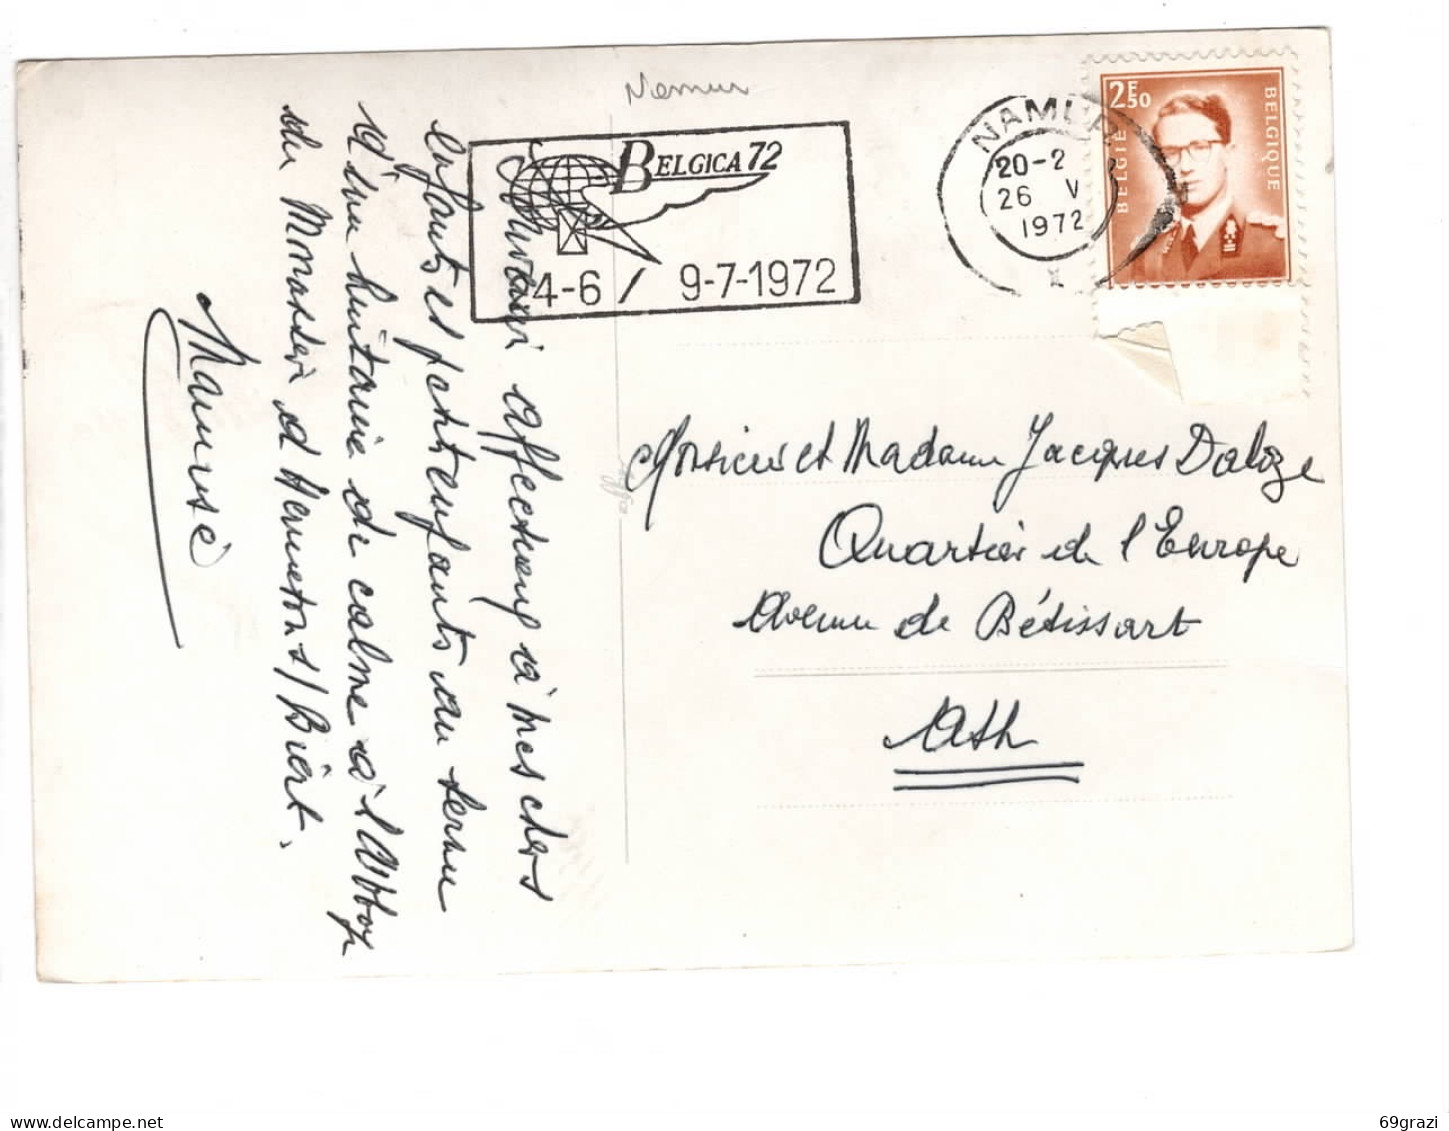 Namur
BELGICA 72
4-6 / 9-7-1972
NAMUR
20-2
26 V
1972
2F50
BELGIE BELGIQUE
affectueux à mes chers
enfants et petits enfants au terme
d'une huitaine de calme à l'Abbaye
du Monastère d'Hermeton s/ Biert.
Mamusé
Monsieur et Madame Jacques Daloze
Quartier de l'Europe
Avenue de Bétissart
Ath
delcampe.net
69grazi